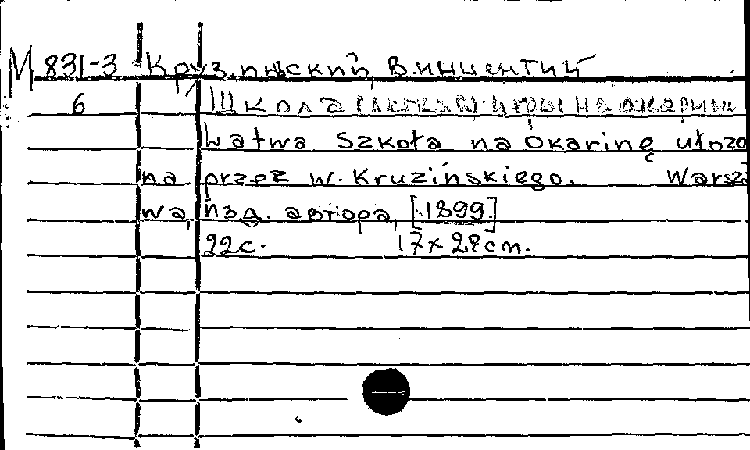 М 831-3 Крузинский, Винцентий
6 Школа (легкая) игры на окарине
Łatwa Szkoła na Okarinę ułożo
na przez W. Kruzińskiego. Warsza
wa, изд. автора, [1899]
22с. 17x28cm.